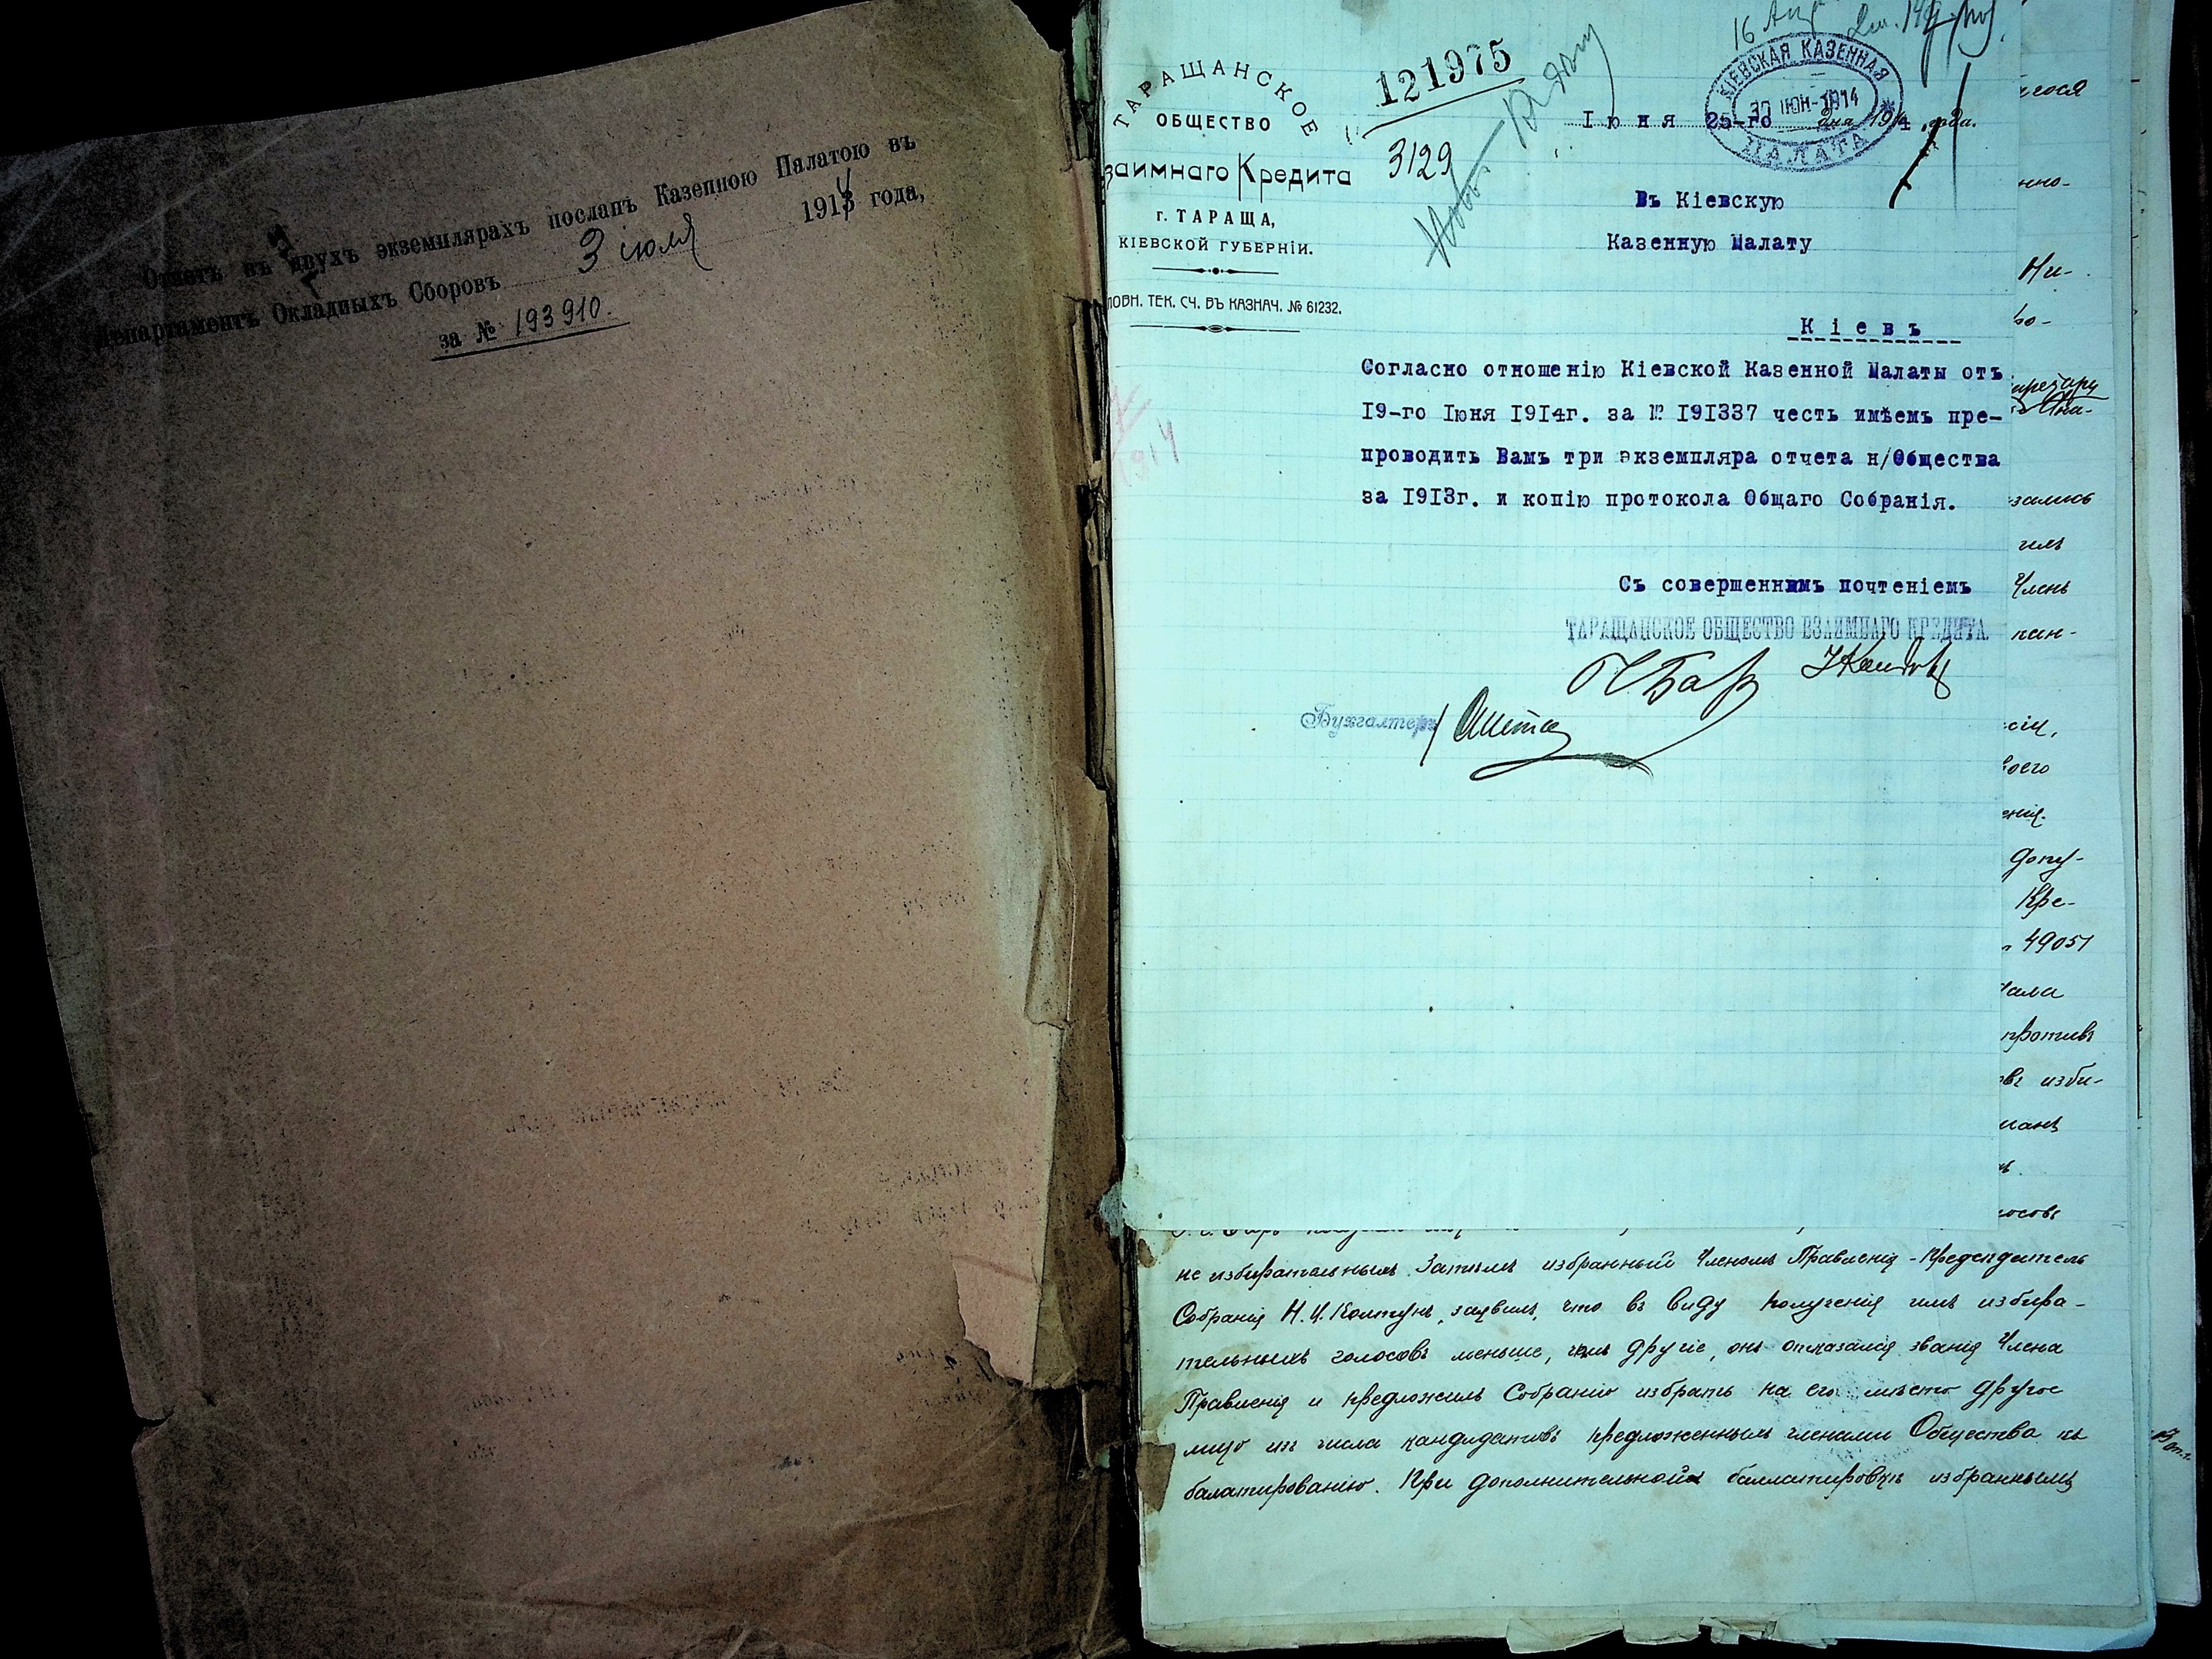 Отчетъ въ двухъ экземплярахъ посланъ Казенною Палатою въ
Департаментъ Окладныхъ Сборовъ 3 іюля 1914 года,
за № 193910.
ТАРАЩАНСКОЕ
ОБЩЕСТВО
Взаимнаго Кредита
г. ТАРАЩА,
КІЕВСКОЙ ГУБЕРНІИ.
ТЕК. СЧ. ВЪ КАЗНАЧ. № 61232.
121975
3129
КІЕВСКАЯ КАЗЕННАЯ
30 ІЮН 1914
ПАЛАТА
Іюня 25-го дня 1914 года.
Въ Кіевскую
Казенную Палату
Кіевъ
Согласно отношенію Кіевской Казенной Палаты отъ
19-го Іюня 1914г. за № 191337 честь имѣемъ пре-
проводить Вамъ три экземпляра отчета н/Общества
за 1913г. и копію протокола Общаго Собранія.
Съ совершеннымъ почтеніемъ
ТАРАЩАНСКОЕ ОБЩЕСТВО ВЗАИМНАГО КРЕДИТА.
Бухгалтеръ
1914
Ни-
зались
гилъ
Членъ
воего
допу-
Кре-
49051
противъ
изби-
не избирательныхъ. Затѣмъ избранный Членомъ Правленія - Предсѣдатель
Собранія Н. И. Колтунъ, заявилъ, что въ виду полученія имъ избира-
тельныхъ голосовъ меньше, чѣмъ другіе, онъ отказался званія Члена
Правленія и предложилъ Собранію избрать на его мѣсто другое
лицо изъ числа кандидатовъ предложенныхъ членами Общества къ
балатированію. При дополнительной баллатировкѣ избраннымъ